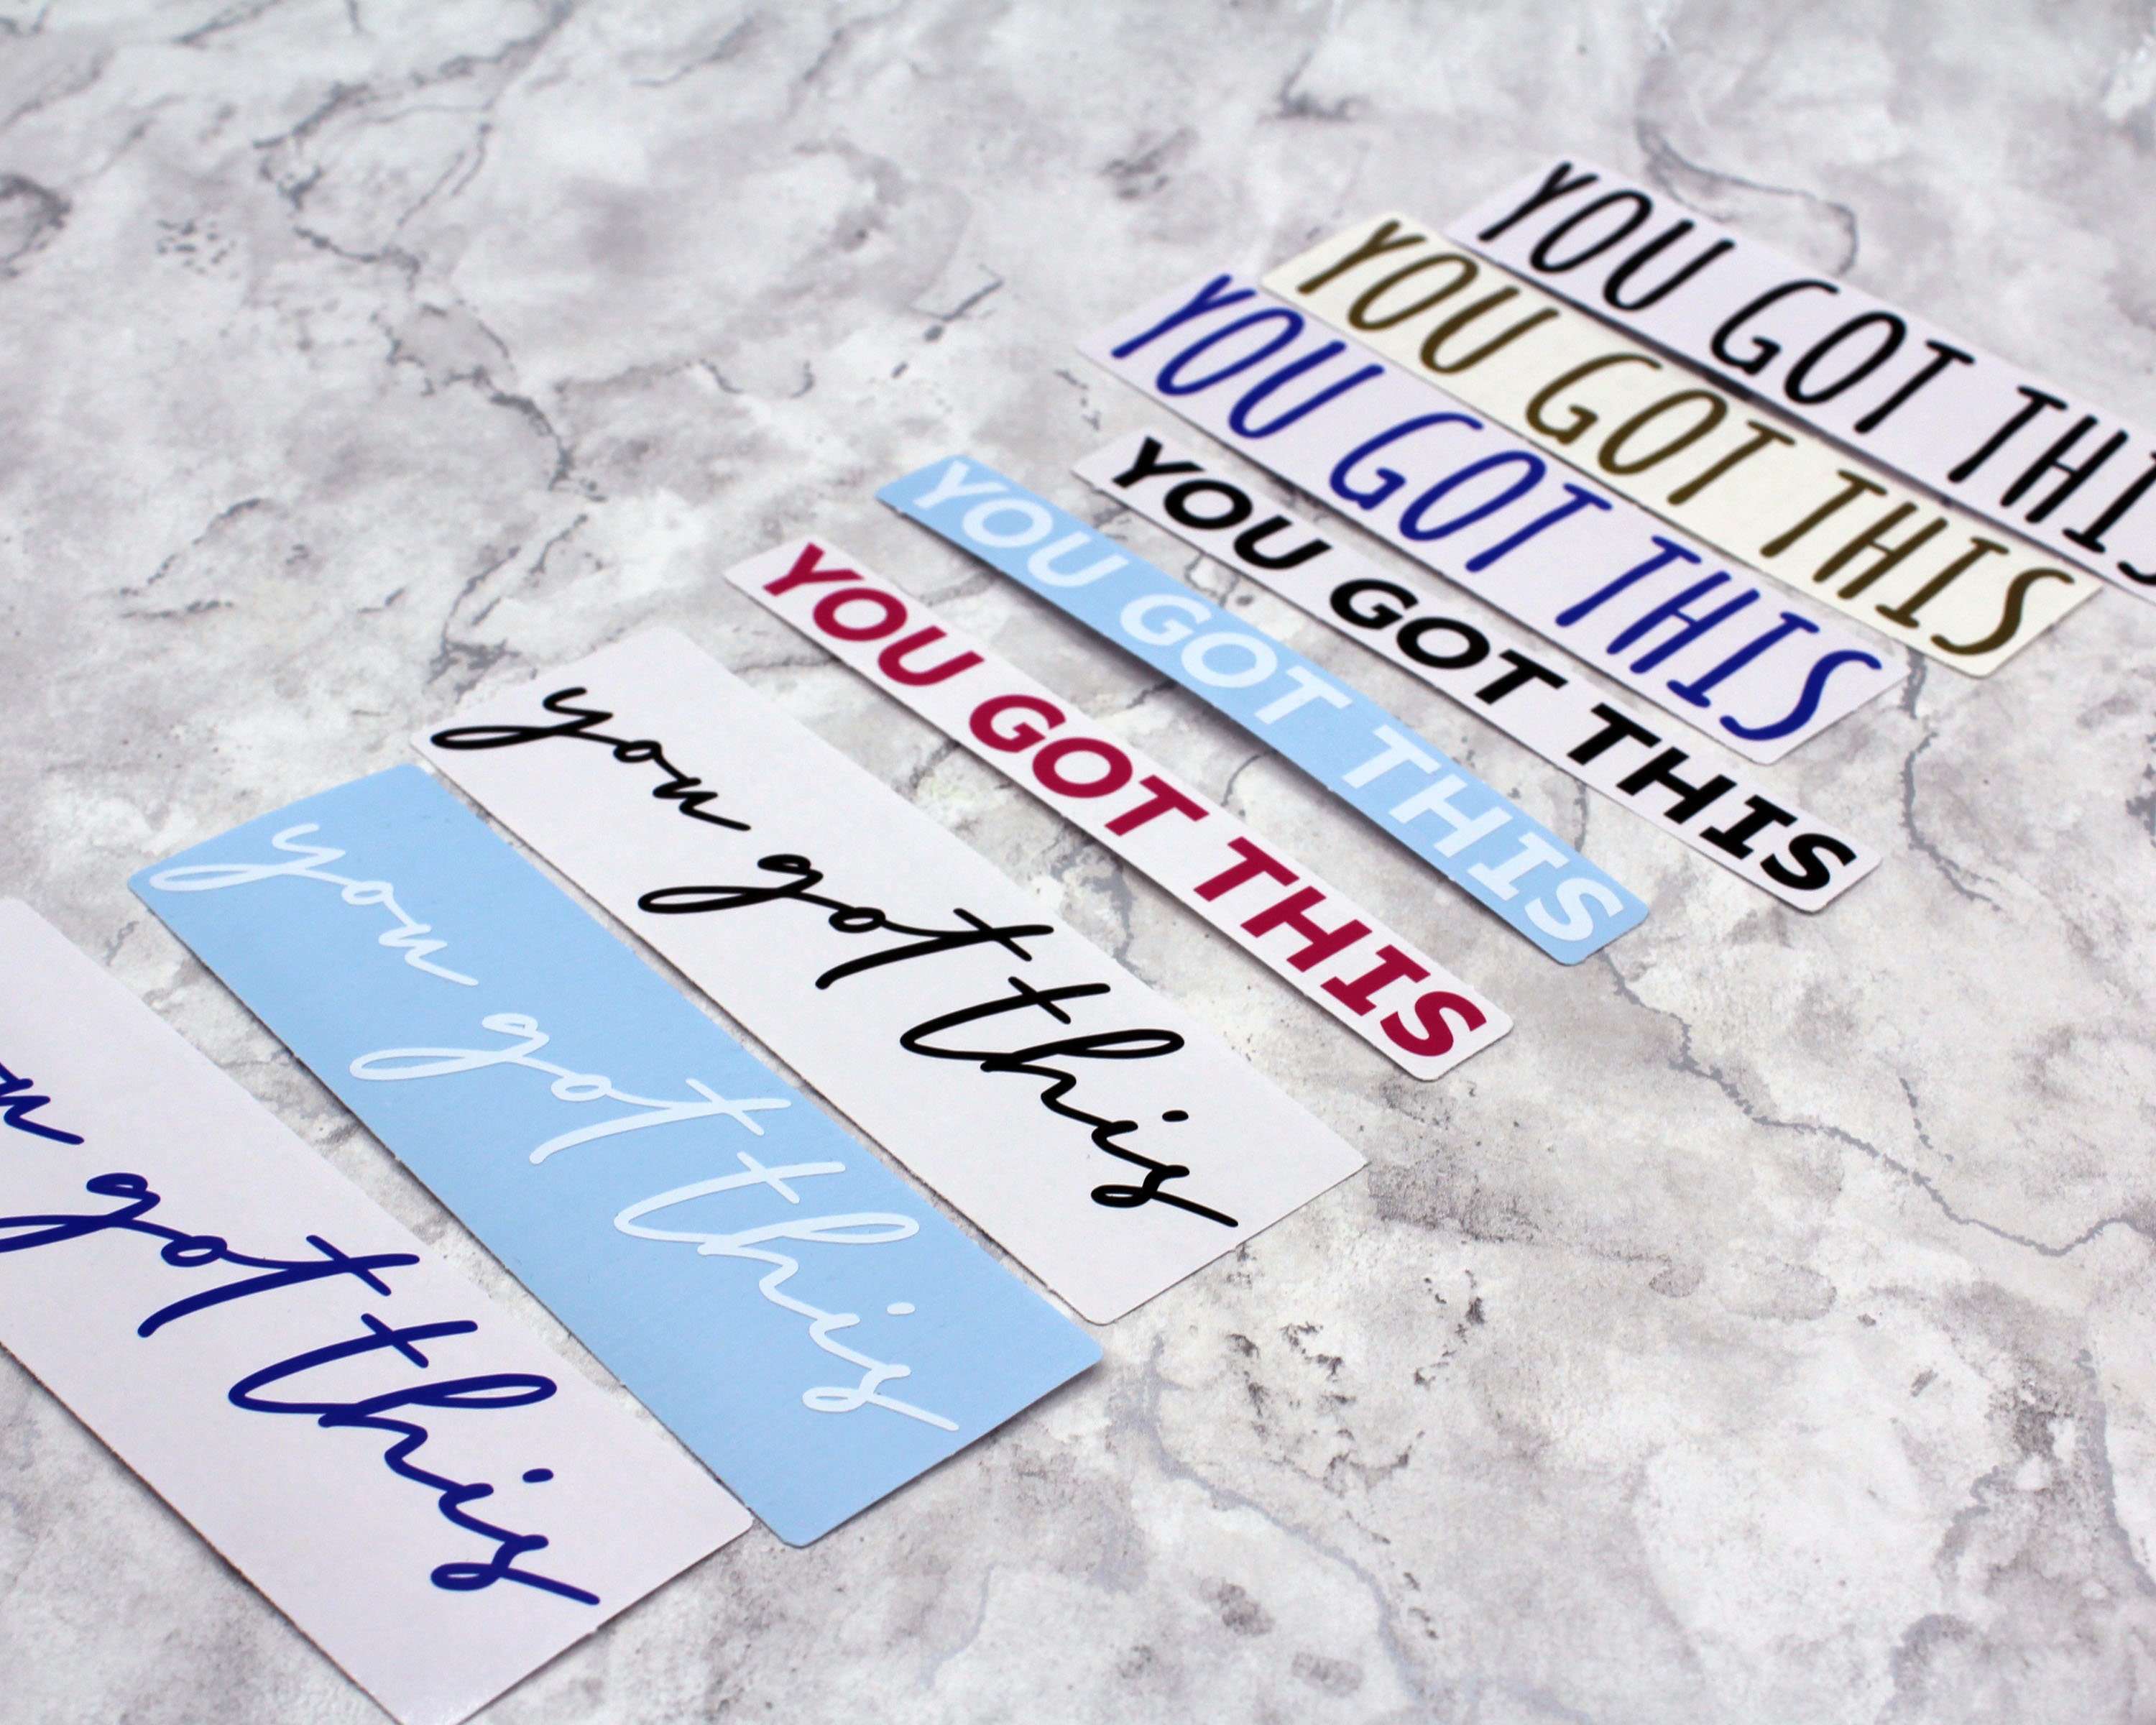 YOU GOT THIS
YOU GOT THIS
YOU GOT THIS
YOU GOT THIS
YOU GOT THIS
YOU GOT THIS
you got this
you got this
got this